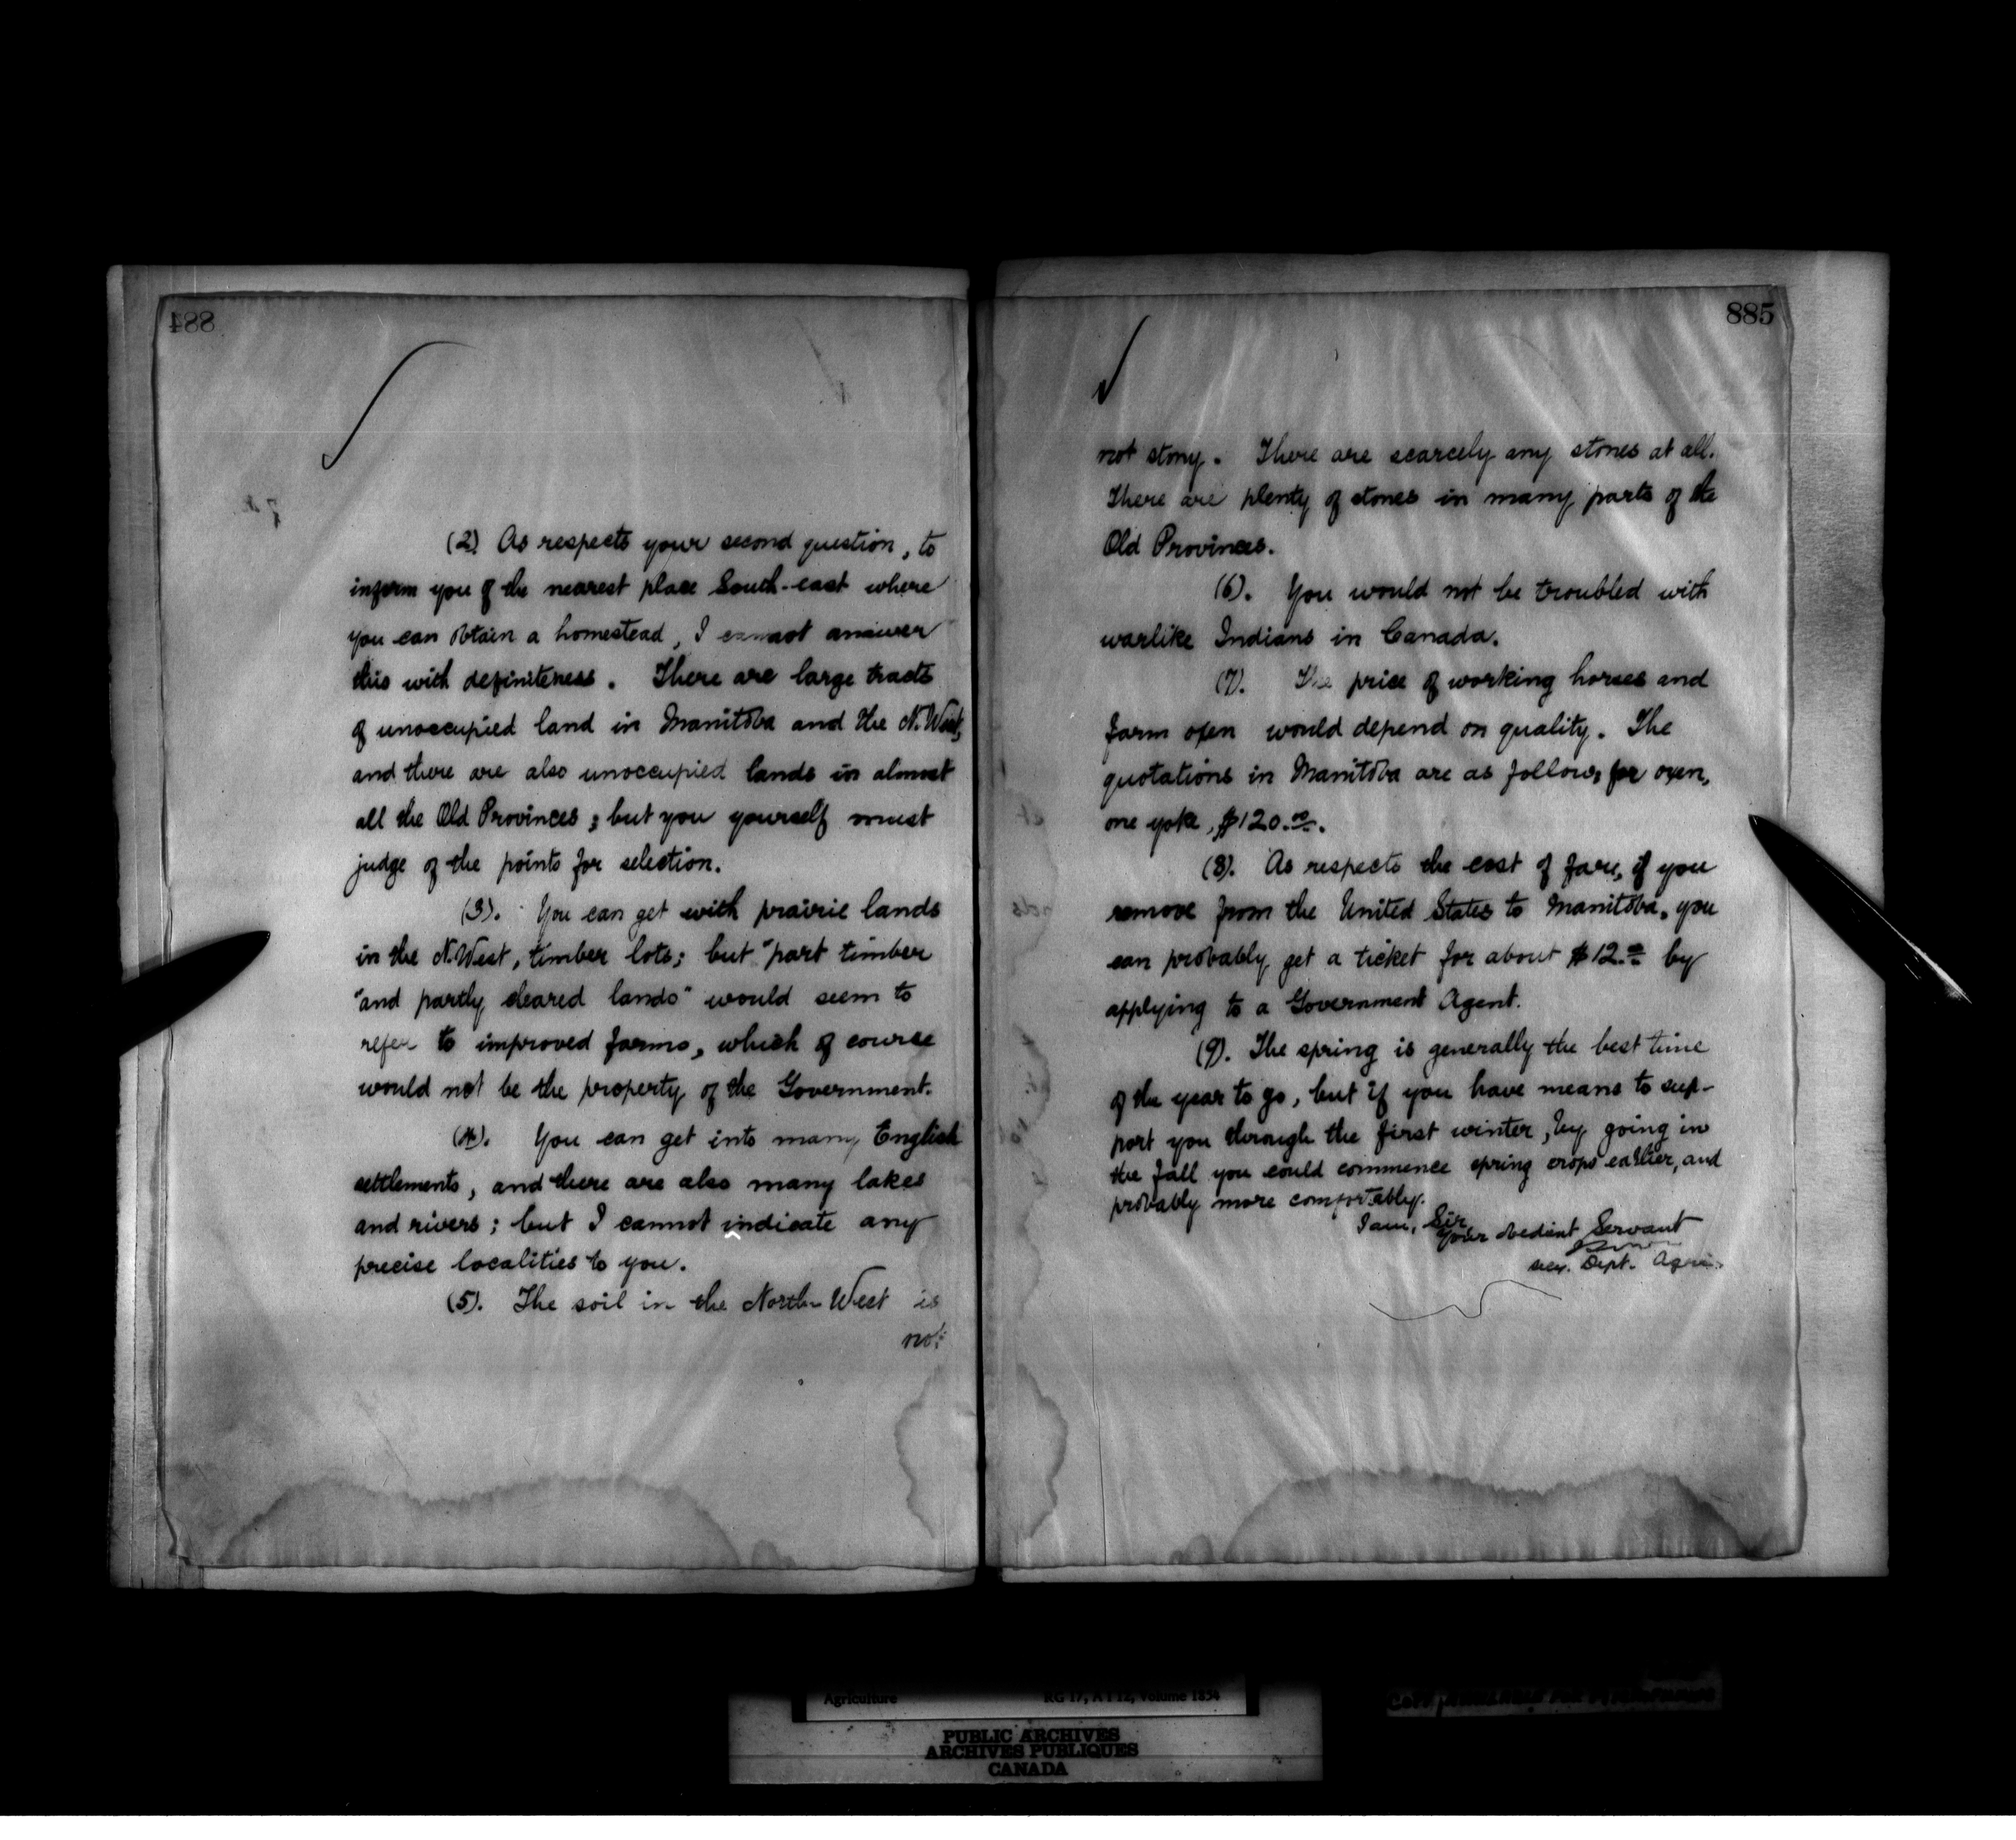 884
(2) As respects your second question, to
inform you of the nearest place South-east where
you can obtain a homestead, I cannot answer
this with definiteness. There are large tracts
of unoccupied land in Manitoba and the N. West,
and there are also unoccupied lands in almost
all the Old Provinces; but you yourself must
judge of the points for selection.
(3). You can get with prairie lands
in the N. West, timber lots; but "part timber
"and partly cleared lands" would seem to
refer to improved farms, which of course
would not be the property of the Government.
(4). You can get into many English
settlements, and there are also many lakes
and rivers; but I cannot indicate any
precise localities to you.
(5). The soil in the North-West is
not
885
not stony. There are scarcely any stones at all.
There are plenty of stones in many parts of the
Old Provinces.
(6). You would not be troubled with
warlike Indians in Canada.
(7). The price of working horses and
farm oxen would depend on quality. The
quotations in Manitoba are as follows for oxen,
one yoke, $120.00.
(8). As respects the cost of fare, if you
remove from the United States to Manitoba, you
can probably get a ticket for about $12.00 by
applying to a Government Agent.
(9). The spring is generally the best time
of the year to go, but if you have means to sup-
port you through the first winter, by going in
the fall you could commence spring crops earlier, and
probably more comfortably.
I am, Sir,
Your obedient Servant
Secy. Dept. Agri.
Agriculture RG 17, A I 12, Volume 1834
PUBLIC ARCHIVES
ARCHIVES PUBLIQUES
CANADA